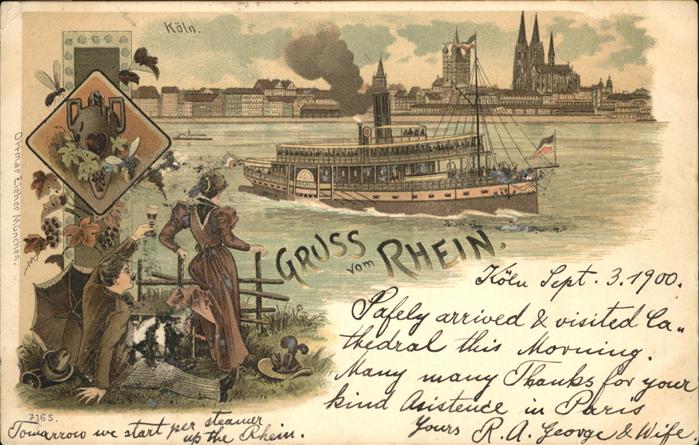 Köln.
Ottmar Zieher München.
GRUSS
vom RHEIN.
Köln Sept. 3. 1900.
Safely arrived & visited Ca-
thedral this Morning.
Many many Thanks for your
kind Asistence in Paris
Yours R. A. George & Wife
7165.
Tomarrow we start per steamer
up the Rhein.